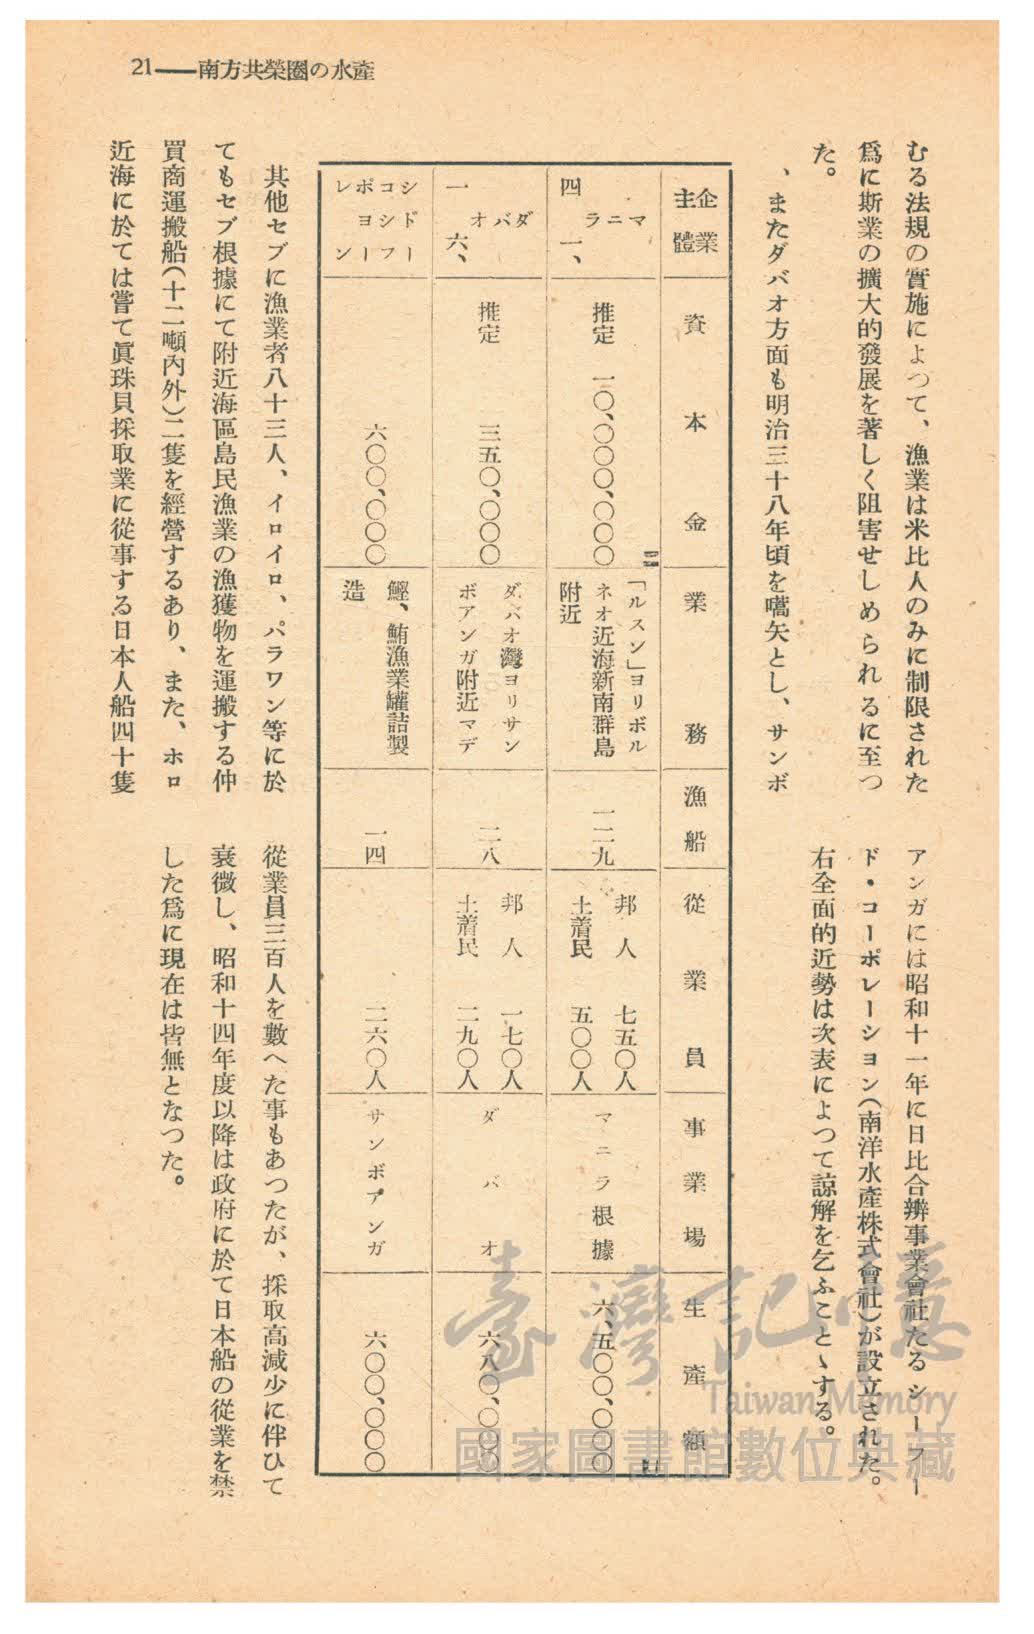 21——南方共榮圈の水產
むる法規の實施によつて、漁業は米比人のみに制限された
爲に斯業の擴大的發展を著しく阻害せしめられるに至つ
た。
、またダバオ方面も明治三十八年頃を嚆矢とし、サンボ
アンガには昭和十一年に日比合辨事業會社たるシーフー
ド・コーポレーション(南洋水產株式會社)が設立された。
右全面的近勢は次表によつて諒解を乞ふことゝする。
企業
主體
資本金
業務
漁船
從業員
事業場
生產額
マニラ
四一、
推定 一〇、〇〇〇、〇〇〇
「ルスン」ヨリボル
ネオ近海新南群島
附近
一二九
邦人 七五〇人
土着民 五〇〇人
マニラ根據
六、五〇〇、〇〇〇
ダバオ
一六、
推定 三五〇、〇〇〇
ダバオ灣ヨリサン
ボアンガ附近マデ
二八
邦人 一七〇人
土着民 二九〇人
ダバオ
六八〇、〇〇〇
シーフード
コーポレーション
六〇〇、〇〇〇
鰹、鮪漁業罐詰製
造
一四
二六〇人
サンボアンガ
六〇〇、〇〇〇
其他セブに漁業者八十三人、イロイロ、パラワン等に於
てもセブ根據にて附近海區島民漁業の漁獲物を運搬する仲
買商運搬船(十二噸內外)二隻を經營するあり、また、ホロ
近海に於ては嘗て眞珠貝採取業に從事する日本人船四十隻
從業員三百人を數へた事もあつたが、採取高減少に伴ひて
衰微し、昭和十四年度以降は政府に於て日本船の從業を禁
した爲に現在は皆無となつた。
臺灣記憶
Taiwan Memory
國家圖書館數位典藏